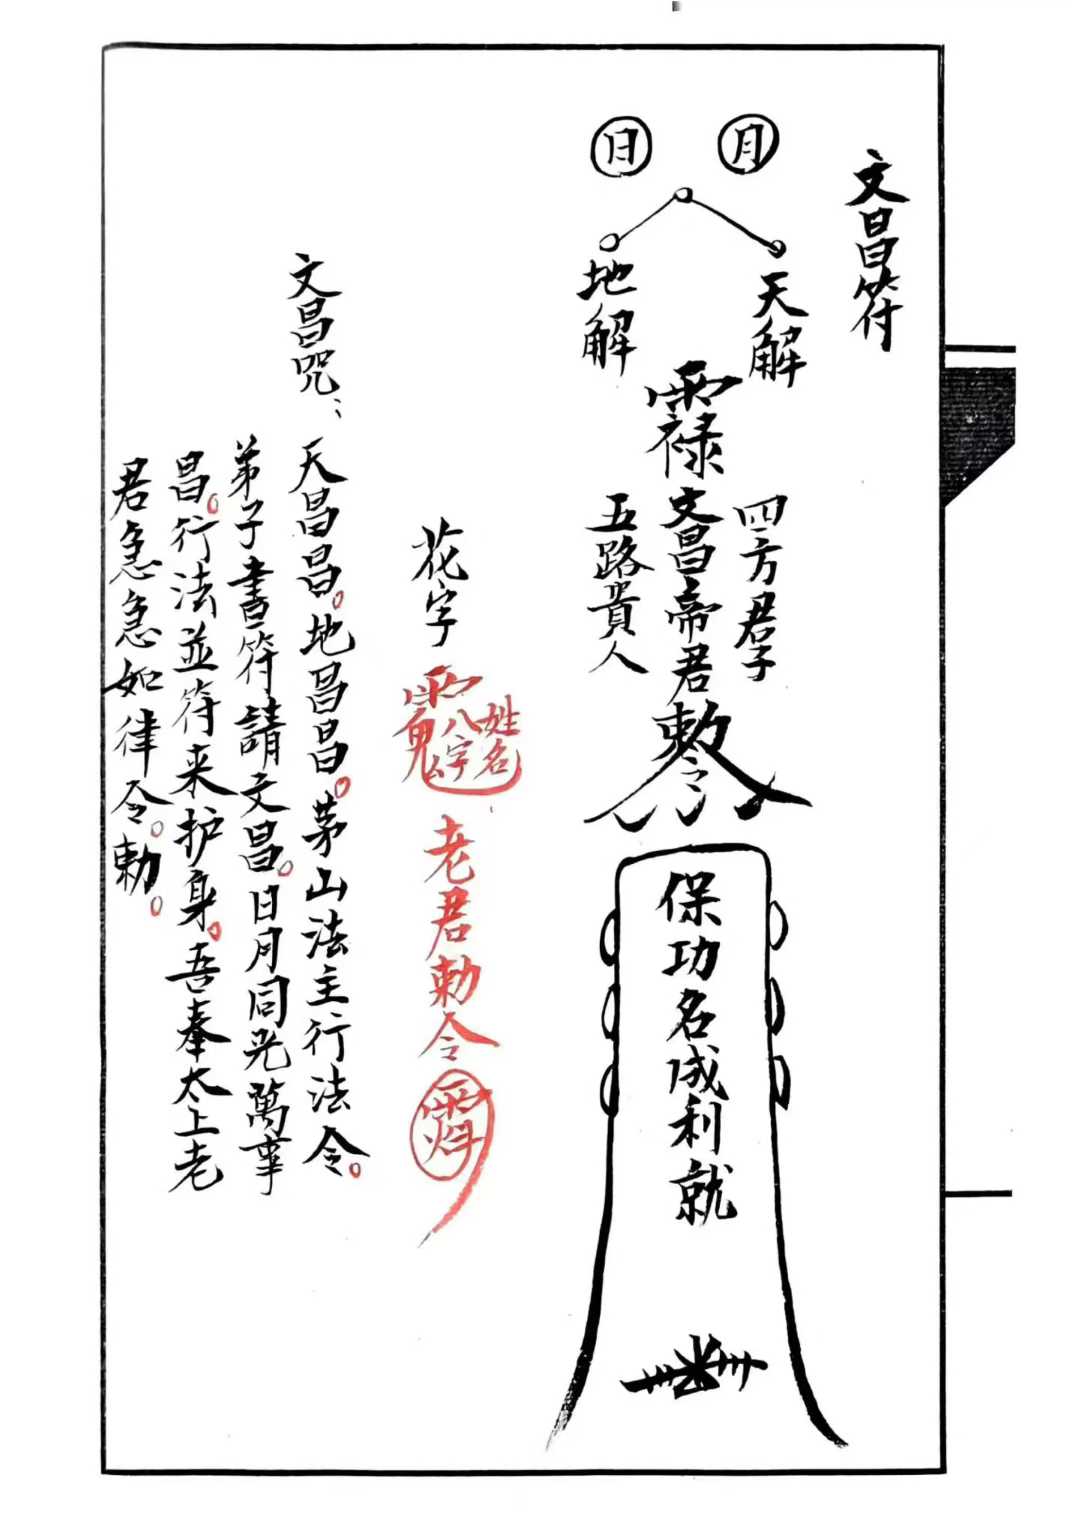 文昌符
月
日
天解
地解
禄
四方君子
文昌帝君敕令
五路貴人
保功名成利就
花字
姓名
八字
老君勅令
文昌咒：
天昌昌。地昌昌。茅山法主行法令。
弟子書符請文昌。日月同光萬事
昌。行法並符来护身。吾奉太上老
君急急如律令。勅。